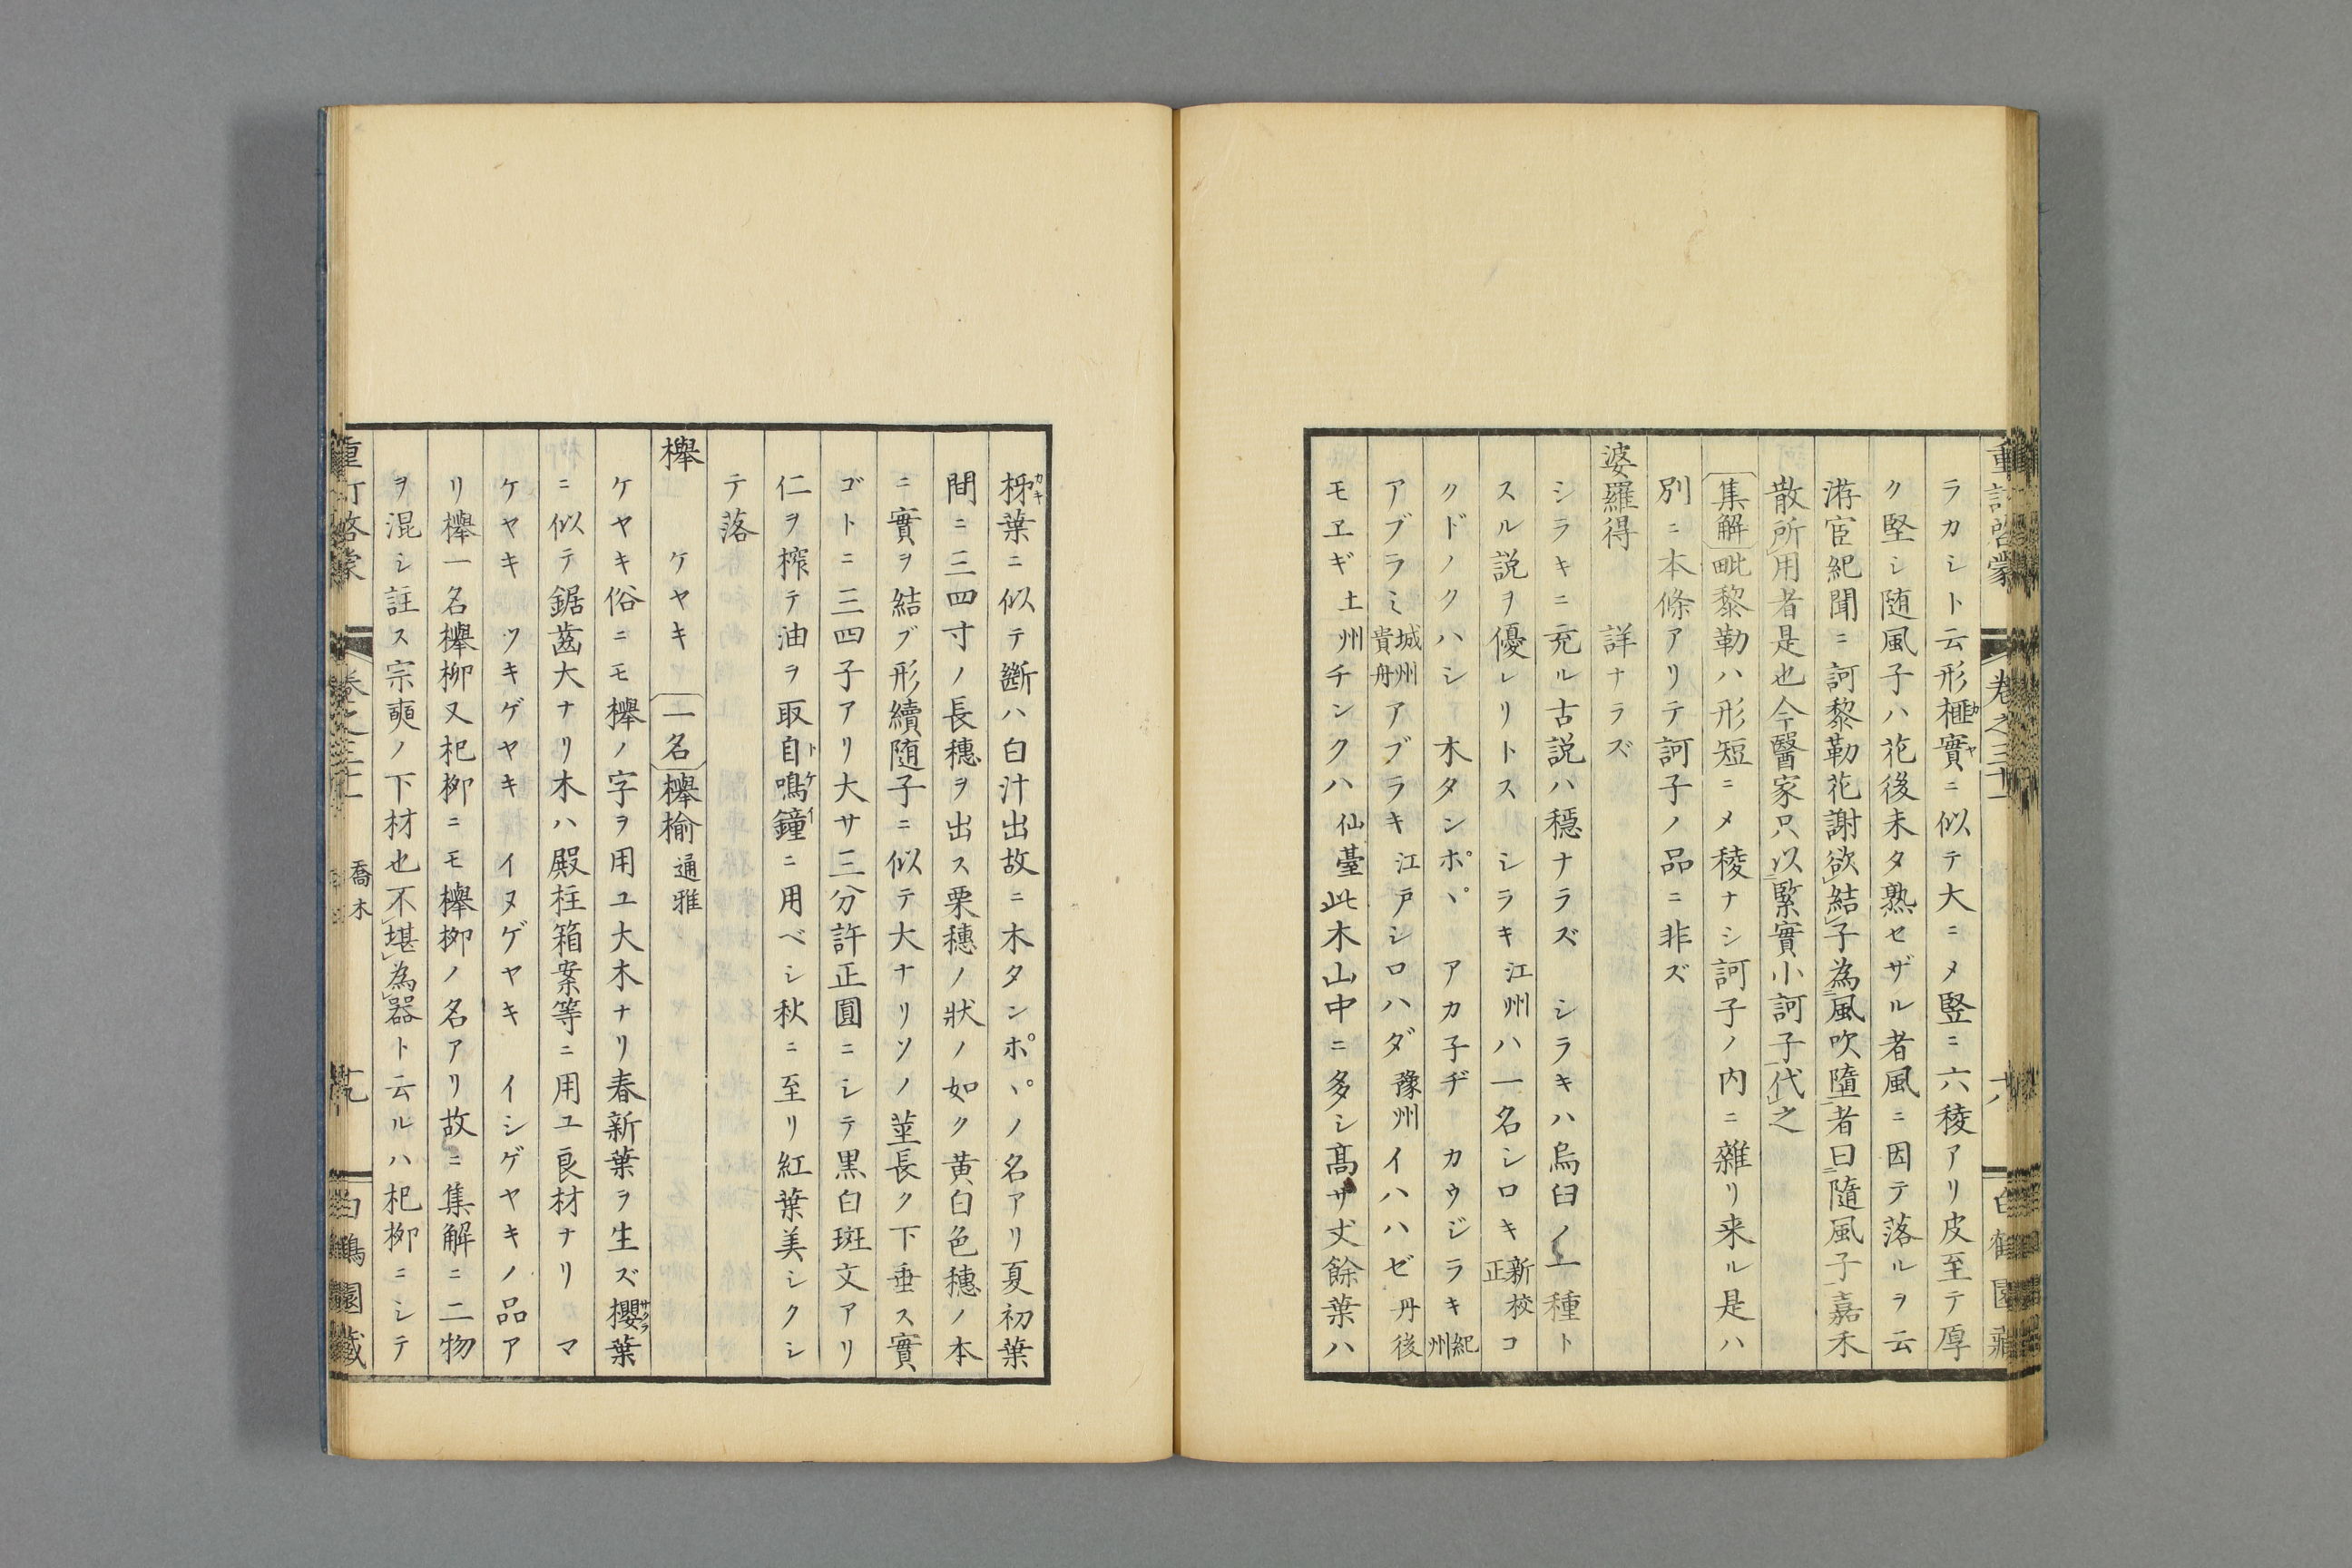 重訂啓蒙 巻之三十一 白鶴園藏
ラカシト云形榧實カヤニ似テ大ニメ竪ニ六稜アリ皮至テ厚
ク堅シ随風子ハ花後未タ熟セザル者風ニ因テ落ルヲ云
游宦紀聞ニ訶黎勒花謝欲結子為風吹墮者曰隨風子嘉禾
散所用者是也今醫家只以緊實小訶子代之
集解毗黎勒ハ形短ニメ稜ナシ訶子ノ内ニ雜リ来ル是ハ
別ニ本條アリテ訶子ノ品ニ非ズ
婆羅得 詳ナラズ
シラキニ充ル古説ハ穏ナラズ シラキハ烏臼ノ一種ト
スル説ヲ優レリトス シラキ江州ハ一名シロキ新校正コ
クドノクハシ 木タンポヽ アカ子ヂ カウジラキ紀州
アブラミ城州貴舟アブラキ江戸シロハダ豫州イハハゼ丹後
モヱギ土州チンクハ仙臺此木山中ニ多シ髙サ丈餘葉ハ
柹カキ葉ニ似テ斷ハ白汁出故ニ木タンポヽノ名アリ夏初葉
間ニ三四寸ノ長穗ヲ出ス栗穗ノ狀ノ如ク黄白色穗ノ本
ニ實ヲ結ブ形續随子ニ似テ大ナリソノ莖長ク下垂ス實
ゴトニ三四子アリ大サ三分許正圓ニシテ黒白斑文アリ
仁ヲ榨テ油ヲ取自鳴鐘トケイニ用ベシ秋ニ至リ紅葉美シクシ
テ落
欅 ケヤキ 一名欅楡通雅
ケヤキ俗ニモ欅ノ字ヲ用ユ大木ナリ春新葉ヲ生ズ櫻サクラ葉
ニ似テ鋸齒大ナリ木ハ殿柱箱案等ニ用ユ良材ナリ マ
ケヤキ ツキゲヤキ イヌゲヤキ イシゲヤキノ品ア
リ欅一名欅柳又杞柳ニモ欅柳ノ名アリ故ニ集解ニ二物
ヲ混シ註ス宗奭ノ下材也不堪為器ト云ルハ杞柳ニシテ
重訂啓蒙 巻之三十一 喬木 白鶴園藏